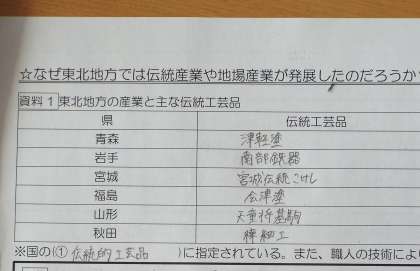 ☆なぜ東北地方では伝統産業や地場産業が発展したのだろうか
資料1 東北地方の産業と主な伝統工芸品
県 伝統工芸品
青森 津軽塗
岩手 南部鉄器
宮城 宮城伝統こけし
福島 会津塗
山形 天童将棋駒
秋田 樺細工
※国の(① 伝統的工芸品 )に指定されている。また、職人の技術によ